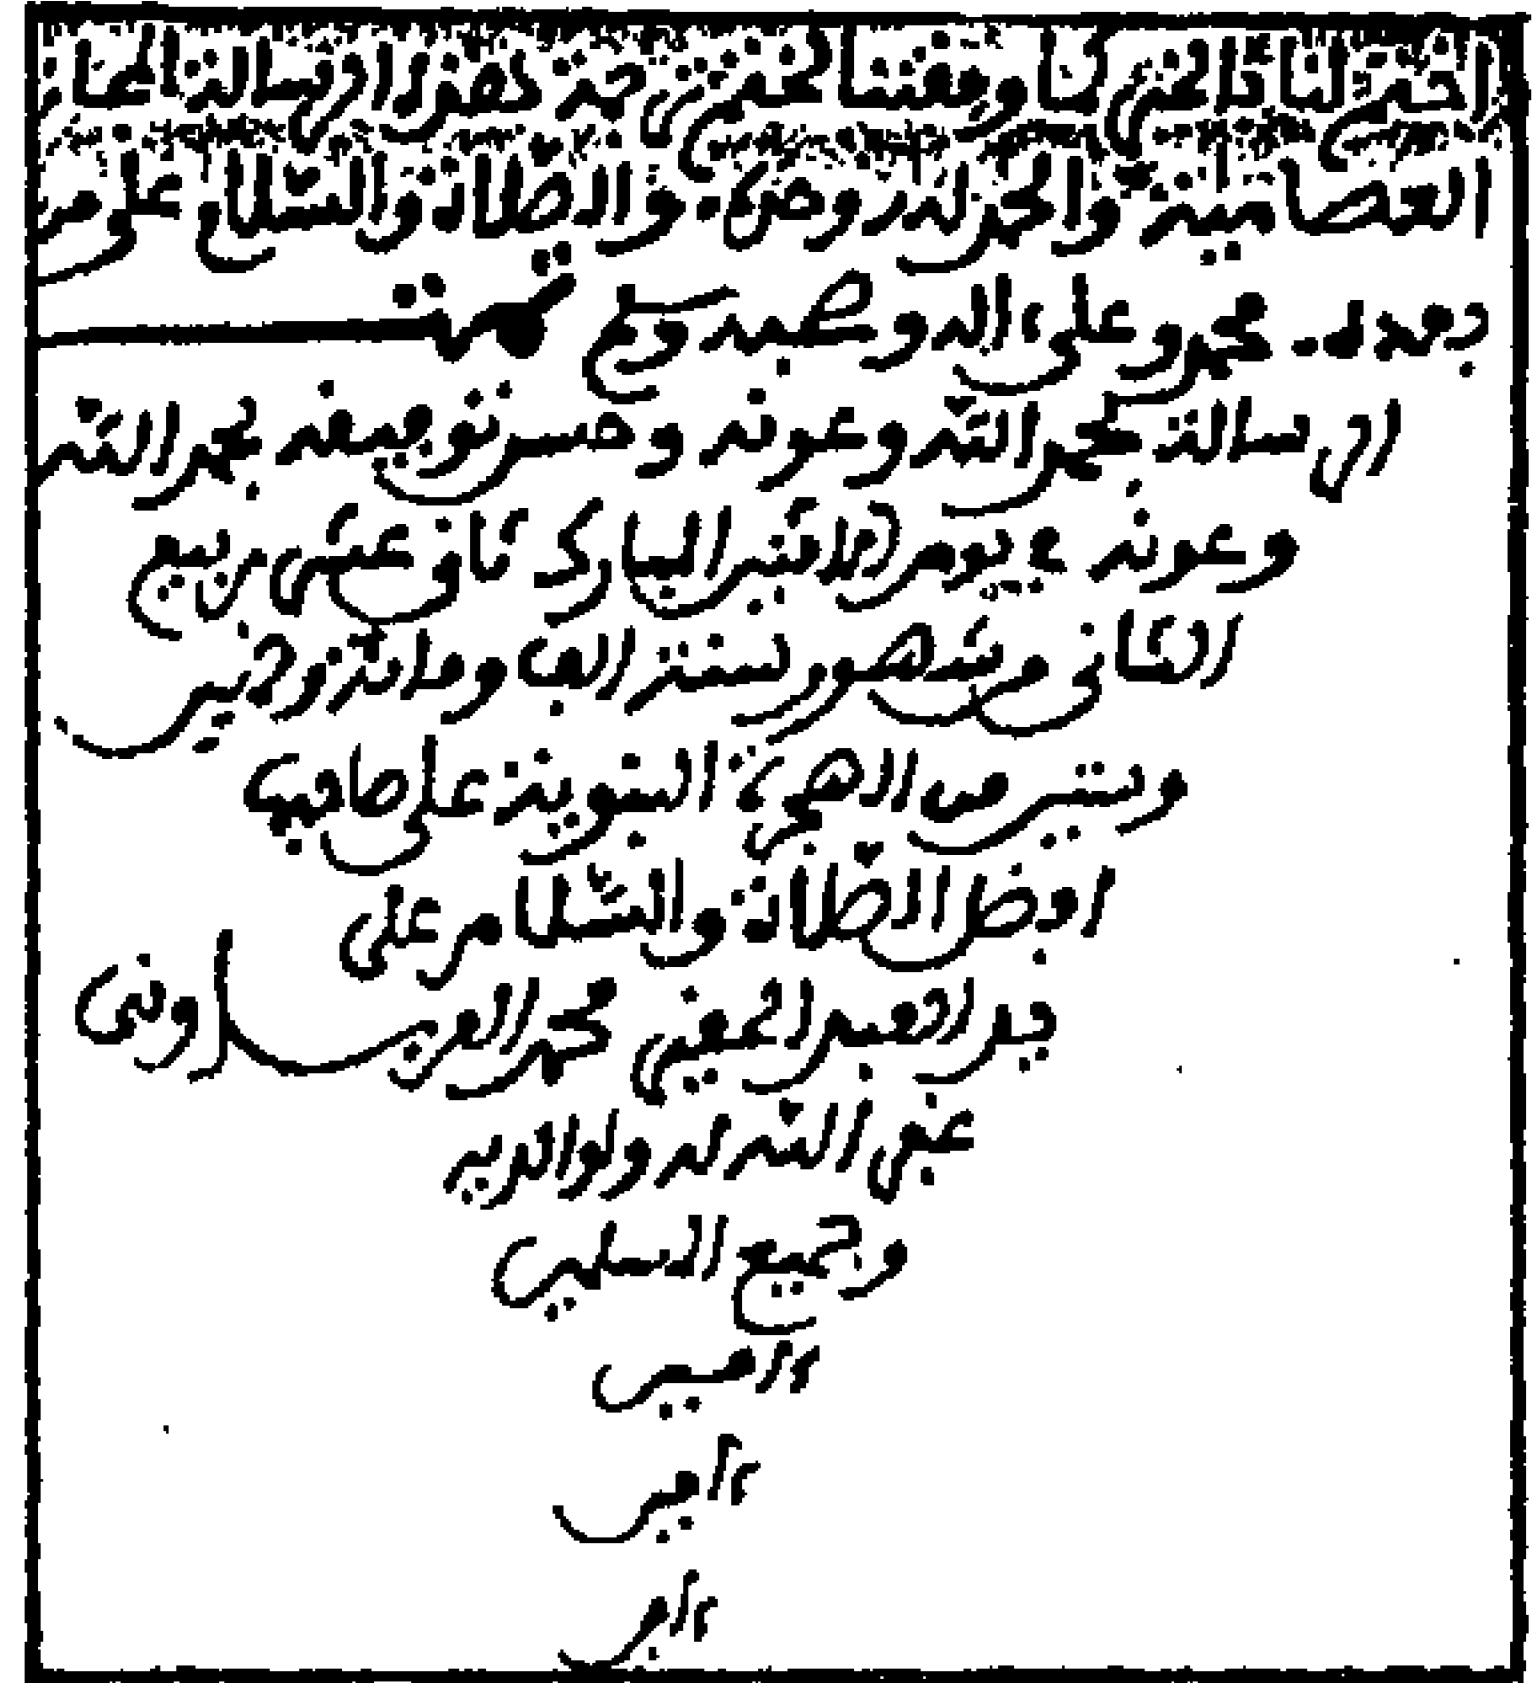 اختم لنا بالخير كما وفقتنا لختم ترجمة هذه الرسالة
العصامية والحمد لله وحده والصلاة والسلام على من
بعده محمد وعلى اله وصحبه تمت
الرسالة بحمد الله وعونه وحسن توفيقه بحمد الله
وعونه في يوم الاثنين المبارك ثاني عشر ربيع
الثاني من شهور سنة الف ومائة واثنين
وستين من الهجرة النبوية على صاحبها
افضل الصلاة والسلام على
يد العبد الفقير محمد
غفر الله له ولوالديه
وجميع المسلمين
امين
امين
امين